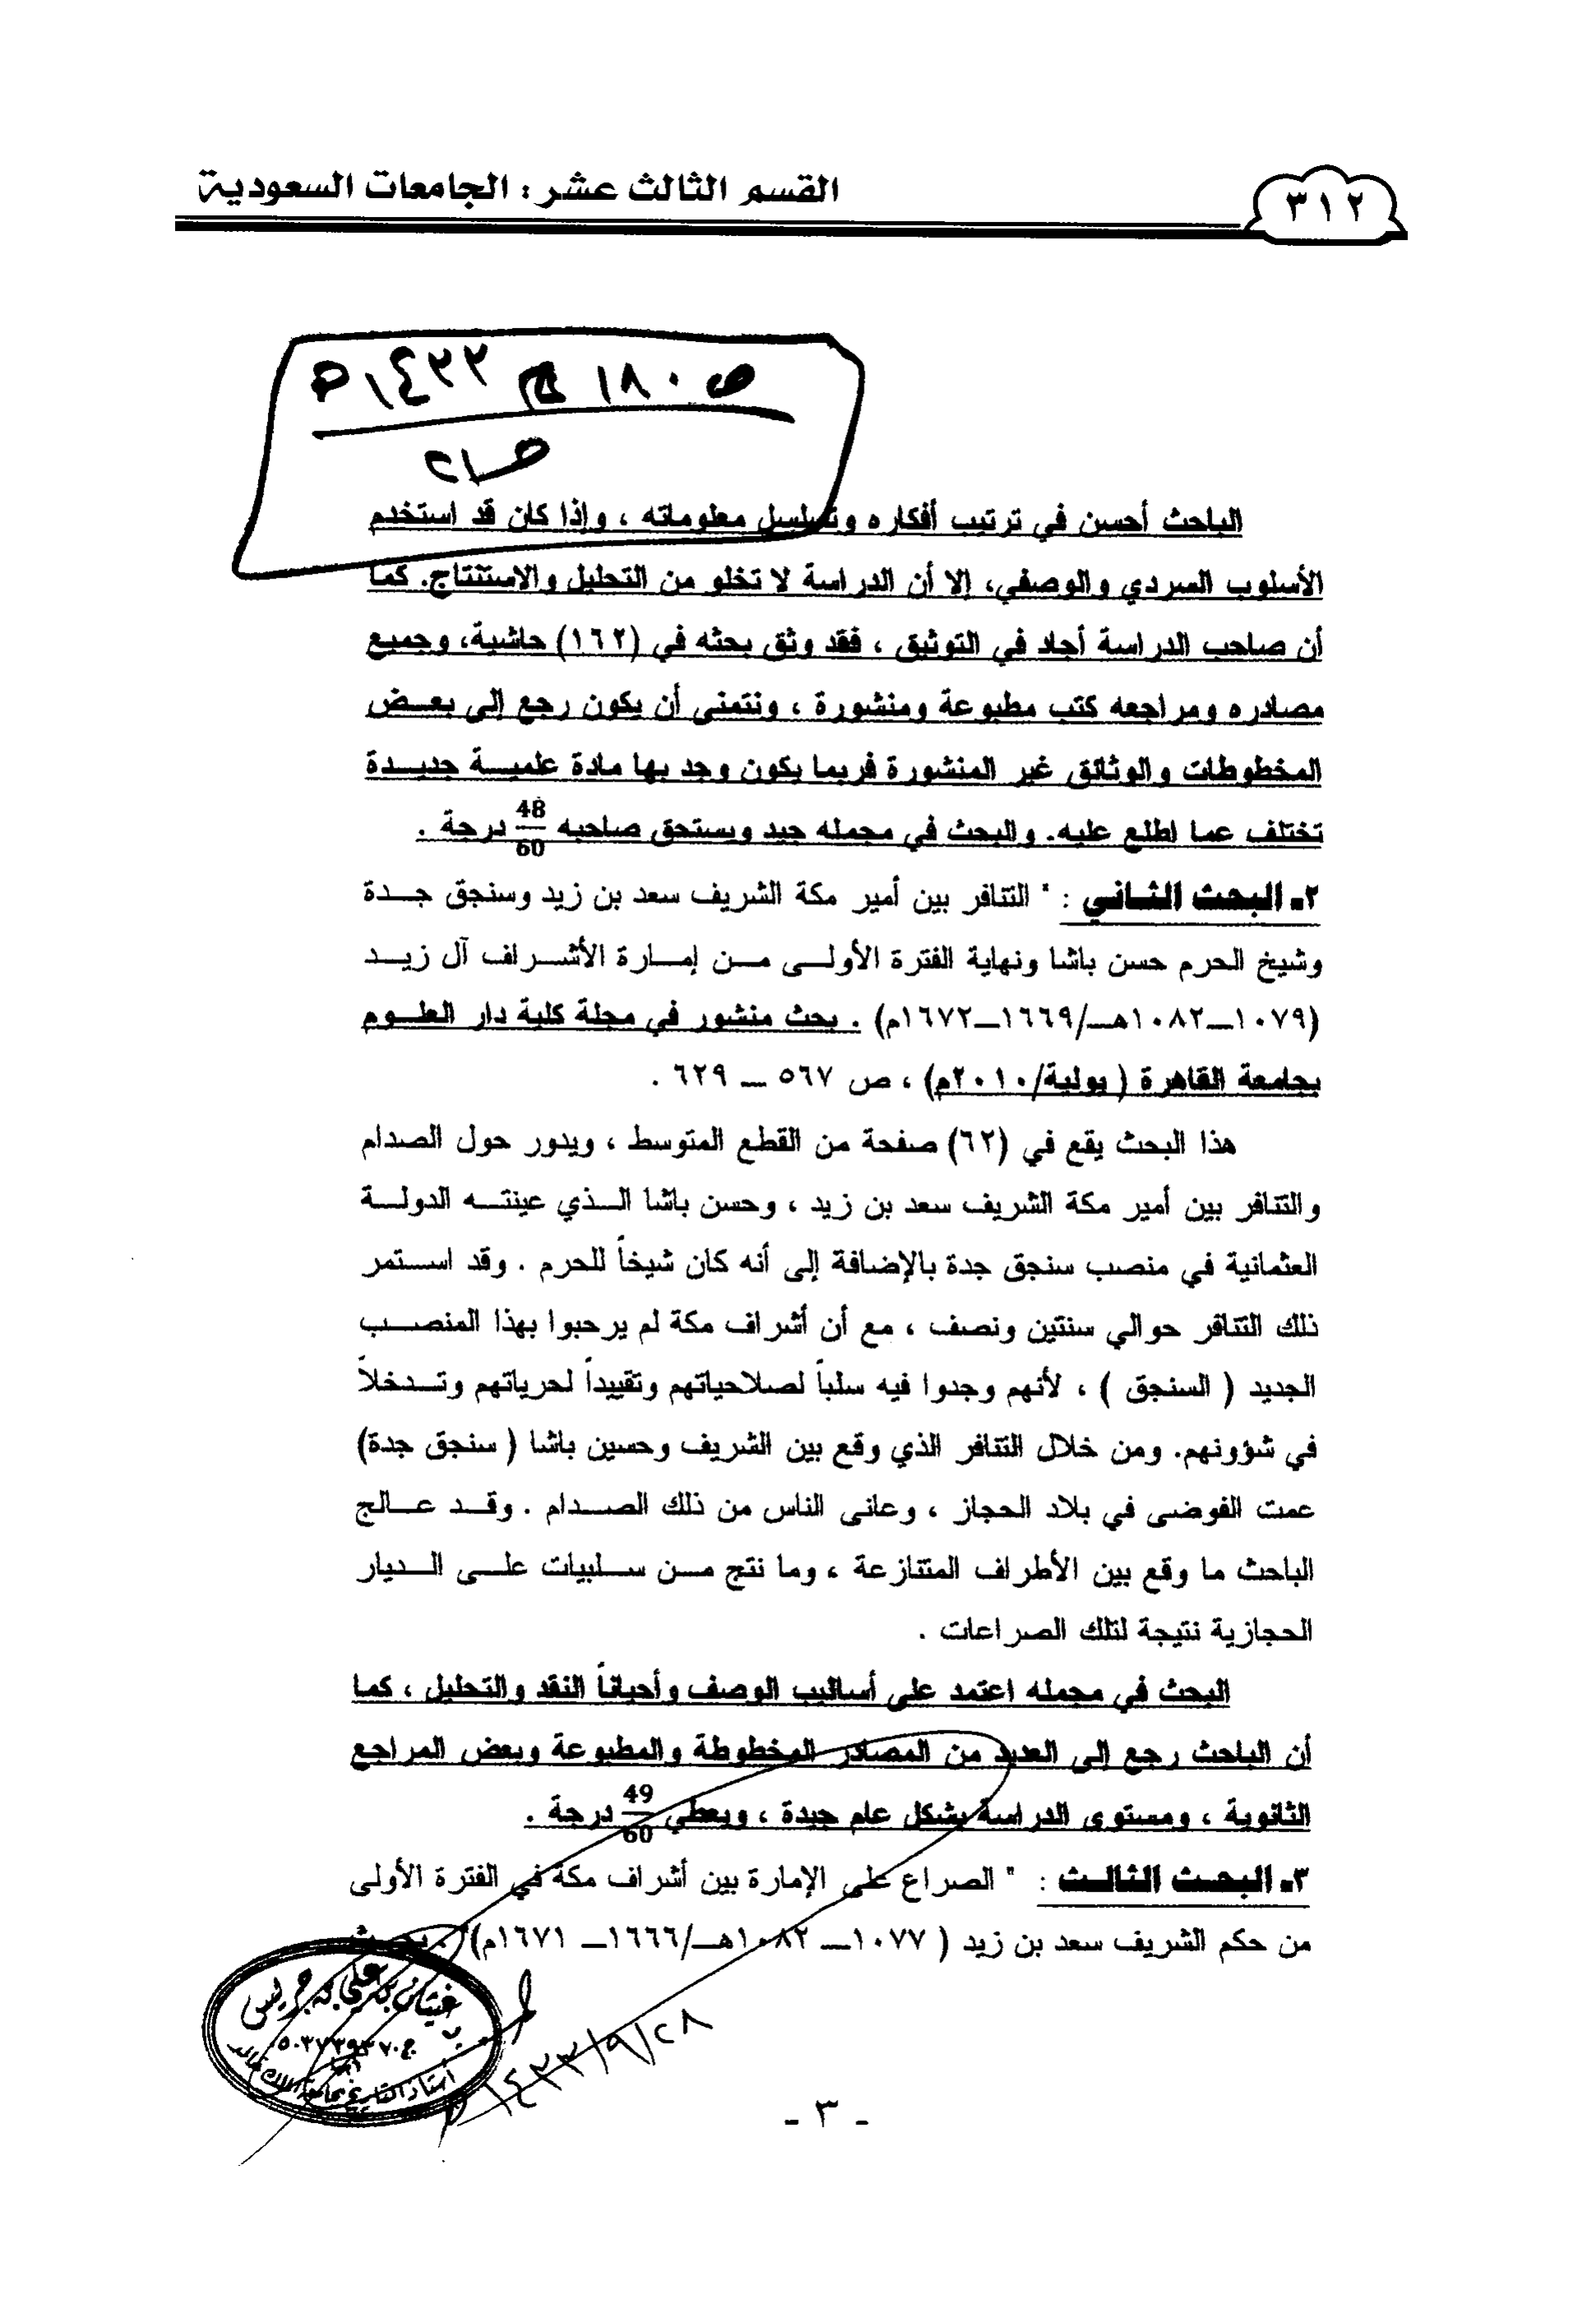 ٣١٢
القسم الثالث عشر : الجامعات السعودية
الباحث أحسن في ترتيب أفكاره وتسلسل معلوماته ، وإذا كان قد استخدم
الأسلوب السردي والوصفي، إلا أن الدراسة لا تخلو من التحليل والاستنتاج. كما
أن صاحب الدراسة أجاد في التوثيق ، فقد وثق بحثه في (١٦٢) حاشية، وجميع
مصادره ومراجعه كتب مطبوعة ومنشورة ، ونتمنى أن يكون رجع إلى بعـض
المخطوطات والوثائق غير المنشورة فربما يكون وجد بها مادة علميـة جديـدة
تختلف عما اطلع عليه. والبحث في مجمله جيد ويستحق صاحبه 48/60 درجة .
٢ـ البحث الثاني : " التنافر بين أمير مكة الشريف سعد بن زيد وسنجق جـدة
وشيخ الحرم حسن باشا ونهاية الفترة الأولـى مـن إمـارة الأشـراف آل زيـد
(١٠٧٩ـ١٠٨٢هـ/١٦٦٩ـ١٦٧٢م) . بحث منشور في مجلة كلية دار العلـوم
بجامعة القاهرة ( يولية/٢٠١٠م) ، ص ٥٦٧ ـ ٦٢٩ .
هذا البحث يقع في (٦٢) صفحة من القطع المتوسط ، ويدور حول الصدام
والتنافر بين أمير مكة الشريف سعد بن زيد ، وحسن باشا الـذي عينتـه الدولـة
العثمانية في منصب سنجق جدة بالإضافة إلى أنه كان شيخاً للحرم . وقد اسـتمر
ذلك التنافر حوالي سنتين ونصف ، مع أن أشراف مكة لم يرحبوا بهذا المنصـب
الجديد ( السنجق ) ، لأنهم وجدوا فيه سلباً لصلاحياتهم وتقييداً لحرياتهم وتـدخلاً
في شؤونهم. ومن خلال التنافر الذي وقع بين الشريف وحسين باشا ( سنجق جدة)
عمت الفوضى في بلاد الحجاز ، وعانى الناس من ذلك الصـدام . وقـد عـالج
الباحث ما وقع بين الأطراف المتنازعة ، وما نتج مـن سـلبيات علـى الـديار
الحجازية نتيجة لتلك الصراعات .
البحث في مجمله اعتمد على أساليب الوصف وأحياناً النقد والتحليل ، كما
أن الباحث رجع إلى العديد من المصادر المخطوطة والمطبوعة وبعض المراجع
الثانوية ، ومستوى الدراسة بشكل عام جيدة ، ويعطي 49/60 درجة .
٣ـ البحث الثالث : " الصراع على الإمارة بين أشراف مكة في الفترة الأولى
من حكم الشريف سعد بن زيد ( ١٠٧٧ـ ١٠٨٢هـ/١٦٦٦ـ ١٦٧١م) . بحـث
١٤٣٣/٩/٢٨
- ٣ -